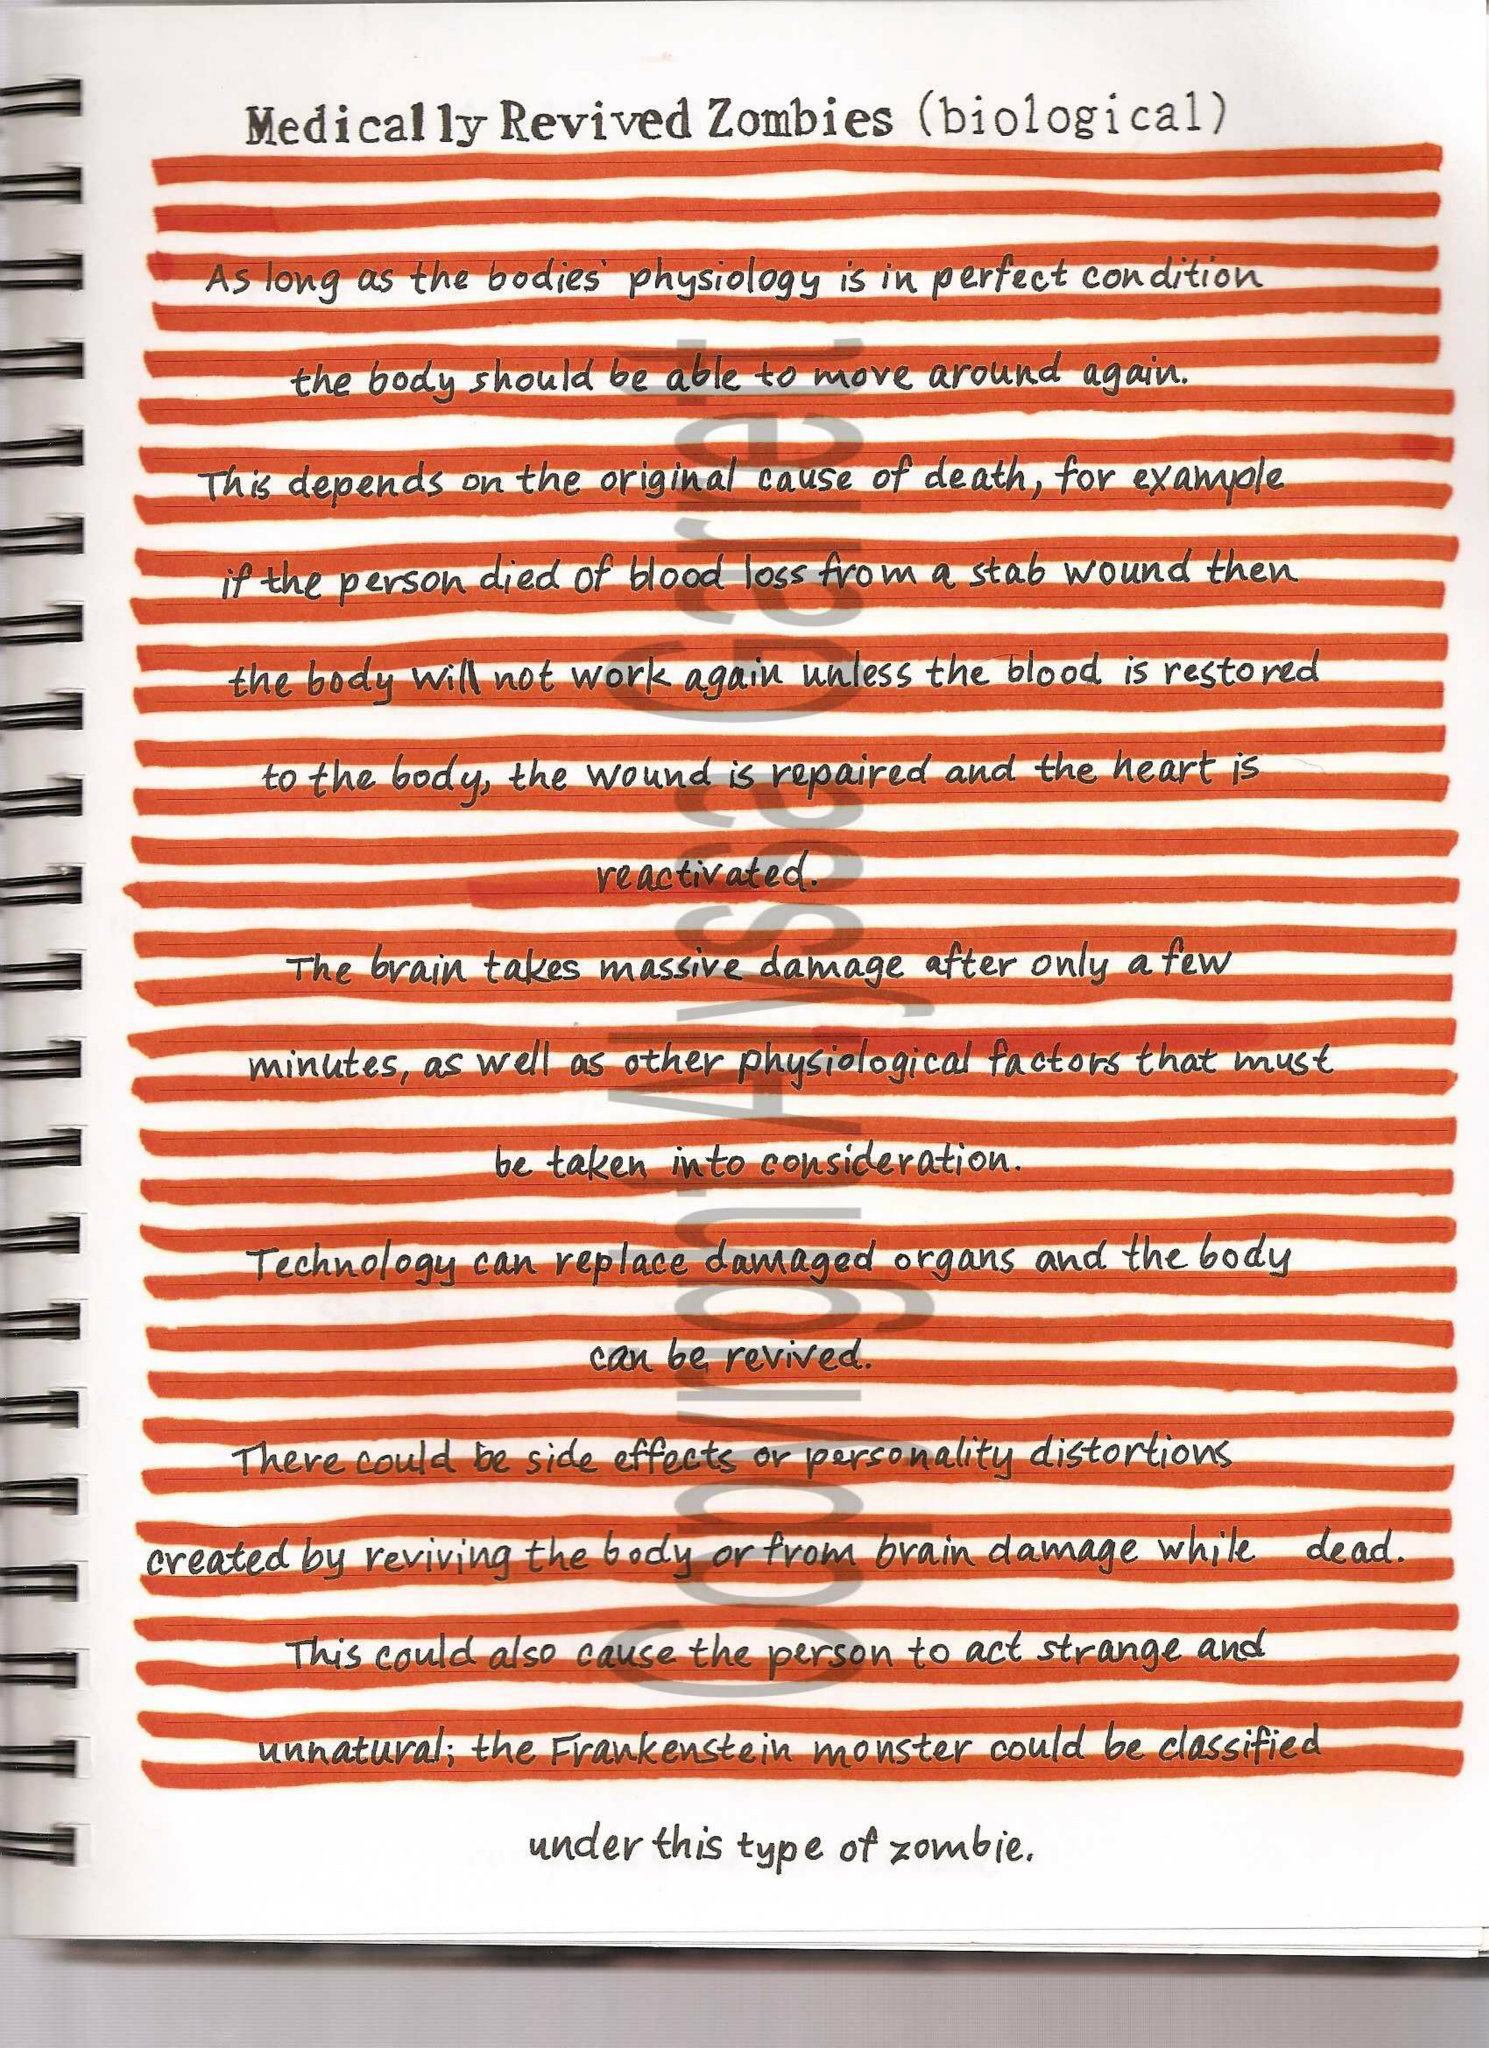 Medically Revived Zombies (biological)
As long as the bodies' physiology is in perfect condition
the body should be able to move around again.
This depends on the original cause of death, for example
if the person died of blood loss from a stab wound then
the body will not work again unless the blood is restored
to the body, the wound is repaired and the heart is
reactivated.
The brain takes massive damage after only a few
minutes, as well as other physiological factors that must
be taken into consideration.
Technology can replace damaged organs and the body
can be revived.
There could be side effects or personality distortions
created by reviving the body or from brain damage while dead.
This could also cause the person to act strange and
unnatural; the Frankenstein monster could be classified
under this type of zombie.
Copyright Alyssa Garrett